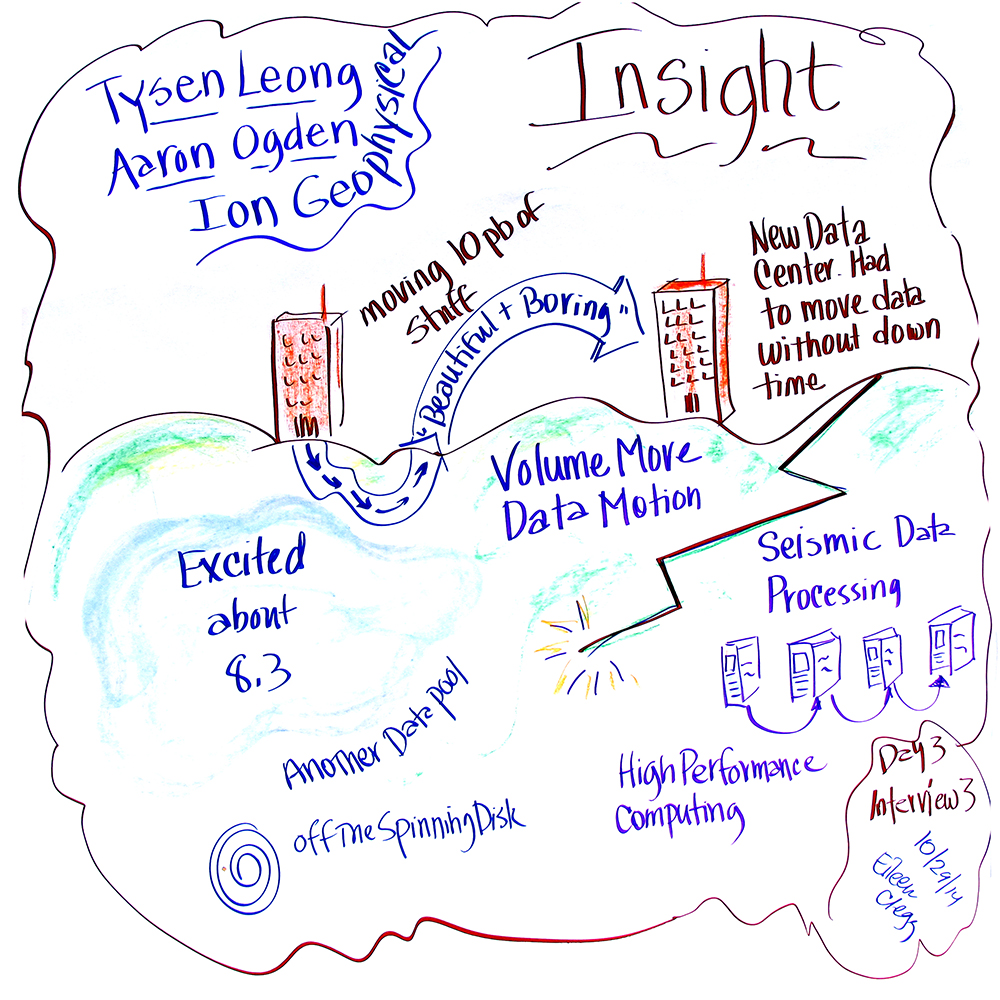 Tysen Leong
Aaron Ogden
Ion Geophysical
Insight
moving 10 pb of
Stuff
"Beautiful + Boring"
New Data
Center. Had
to move data
without down
time
Volume Move
Data Motion
Excited
about
8.3
Seismic Data
Processing
Another Data pool
off The Spinning Disk
High Performance
Computing
Day 3
Interview 3
10/29/14
Eileen
Clegg